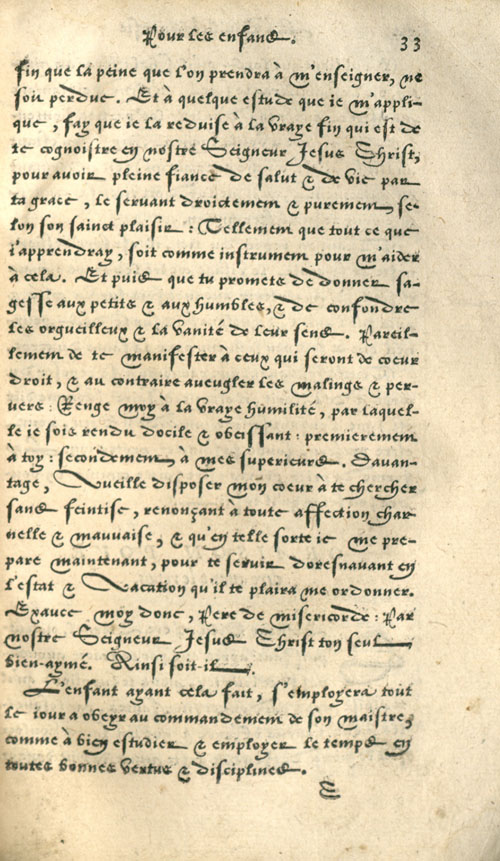 Pour les enfans.
33
fin que la peine que l'on prendra à m'enseigner, ne
soit perdue. Et à quelque estude que ie m'appli-
que, fay que ie la reduise à la vraye fin qui est de
te cognoistre en nostre Seigneur Jesus Christ,
pour avoir pleine fiance de salut & de vie par
ta grace, le servant droictement & purement, se-
lon son sainct plaisir : Tellement que tout ce que
i'apprendray, soit comme instrument pour m'aider
à cela. Et puis que tu promets de donner sa-
gesse aux petits & aux humbles, & de confondre
les orgueilleux & la vanité de leur sens. Pareil-
lement de te manifester à ceux qui seront de coeur
droit, & au contraire aveugler les malings & per-
vers : Renge moy à la vraye humilité, par laquel-
le ie sois rendu docile & obeissant : premierement
à toy : secondement, à mes superieurs. Davan-
tage, Vueille disposer mon coeur à te chercher
sans feintise, renonçant à toute affection char
nelle & mauvaise, & qu'en telle sorte ie me pre-
pare maintenant, pour te servir doresnavant en
l'estat & Vacation qu'il te plaira me ordonner.
Exauce moy donc, Pere de misericorde : Par
nostre Seigneur Jesus Christ ton seul
bien-aymé. Ainsi soit-il.
L'enfant ayant cela fait, s'employera tout
le iour a obeyr au commandement de son maistre,
comme à bien estudier & employer le temps en
toutes bonnes vertus & disciplines.
E